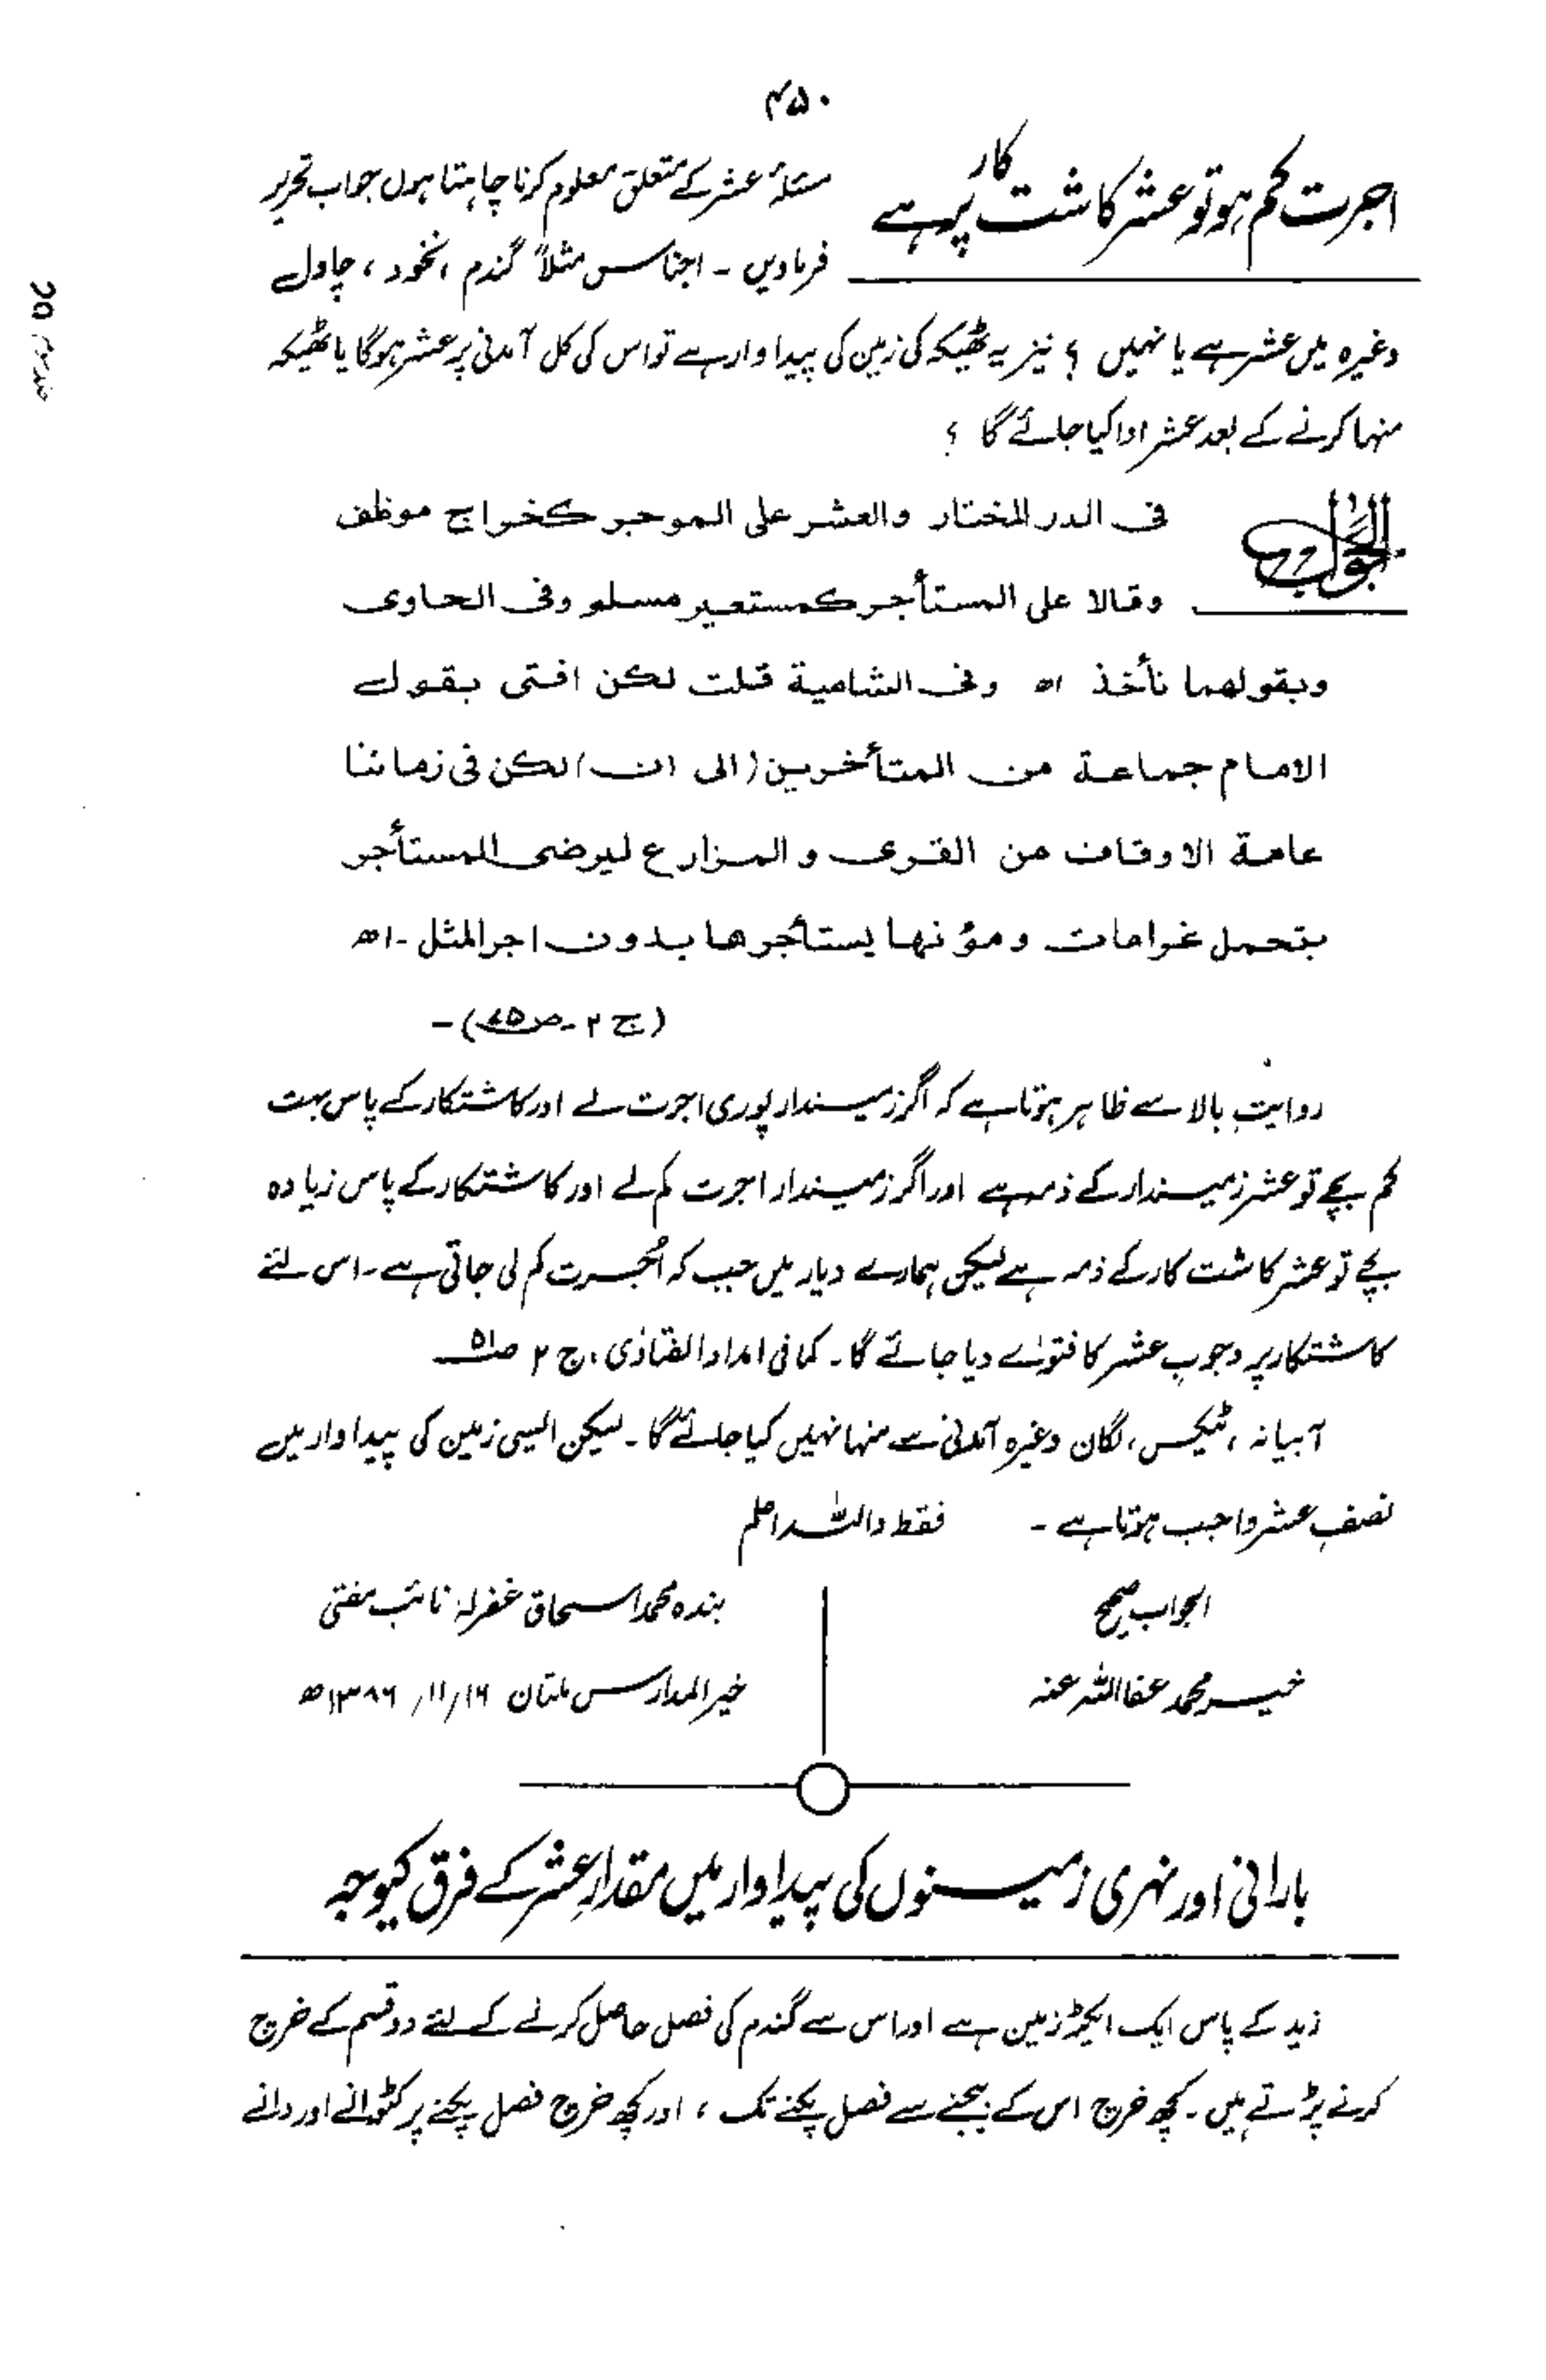 ۴۵۰
اجرت کم ہو تو عشر کاشت کار پر ہے
مسئلہ عشر کے متعلق معلوم کرنا چاہتا ہوں جواب تحریر
فرماویں ۔ اجناس مثلاً گندم ، نخود ، چاول
وغیرہ میں عشر ہے یا نہیں ؟ نیز یہ ٹھیکہ کی زمین کی پیداوار ہے تو اس کی کل آمدنی پر عشر ہوگا یا ٹھیکہ
منہا کرنے کے بعد عشر ادا کیا جائے گا ؟
الجواب
فی الدر المختار والعشر علی الموجر کخراج موظف
وقالا علی المستأجر کمستعیر مسلم وفی الحاوی
وبقولهما نأخذ اھ وفی الشامیة قلت لکن افتی بقول
الامام جماعة من المتأخرین (الی ان) لکن فی زماننا
عامة الاوقاف من القری و المزارع لیرضی المستأجر
بتحمل غرامات ومؤنها یستأجرها بدون اجر المثل ۔ اھ
(ج ۲ ۔ ص) ۔
روایتِ بالا سے ظاہر ہوتا ہے کہ اگر زمیندار پوری اجرت لے اور کاشتکار کے پاس بہت
کم بچے تو عشر زمیندار کے ذمہ ہے اور اگر زمیندار اجرت کم لے اور کاشتکار کے پاس زیادہ
بچے تو عشر کاشت کار کے ذمہ ہے لیکن ہمارے دیار میں جب کہ اُجرت کم لی جاتی ہے ۔ اس لئے
کاشتکار پر وجوبِ عشر کا فتویٰ دیا جائے گا ۔ کما فی امداد الفتاوٰی ، ج ۲ ص۵۱
آبیانہ ، ٹیکس ، لگان وغیرہ آمدنی سے منہا نہیں کیا جائے گا ۔ لیکن ایسی زمین کی پیداوار میں
نصفِ عشر واجب ہوتا ہے ۔ فقط واللہ اعلم
الجواب صحیح
خیر محمد عفا اللہ عنہ
بندہ محمد اسحاق غفرلہٗ نائب مفتی
خیر المدارس ملتان ۱۶/ ۱۱/ ۱۳۸۶ھ
بارانی اور نہری زمینوں کی پیداوار میں مقدارِ عشر کے فرق کیوجہ
زید کے پاس ایک ایکڑ زمین ہے اور اس سے گندم کی فصل حاصل کرنے کے لئے دو قسم کے خرچ
کرنے پڑتے ہیں ۔ کچھ خرچ اس کے بیجنے سے فصل پکنے تک ، اور کچھ خرچ فصل پکنے پر کٹوانے اور دانے